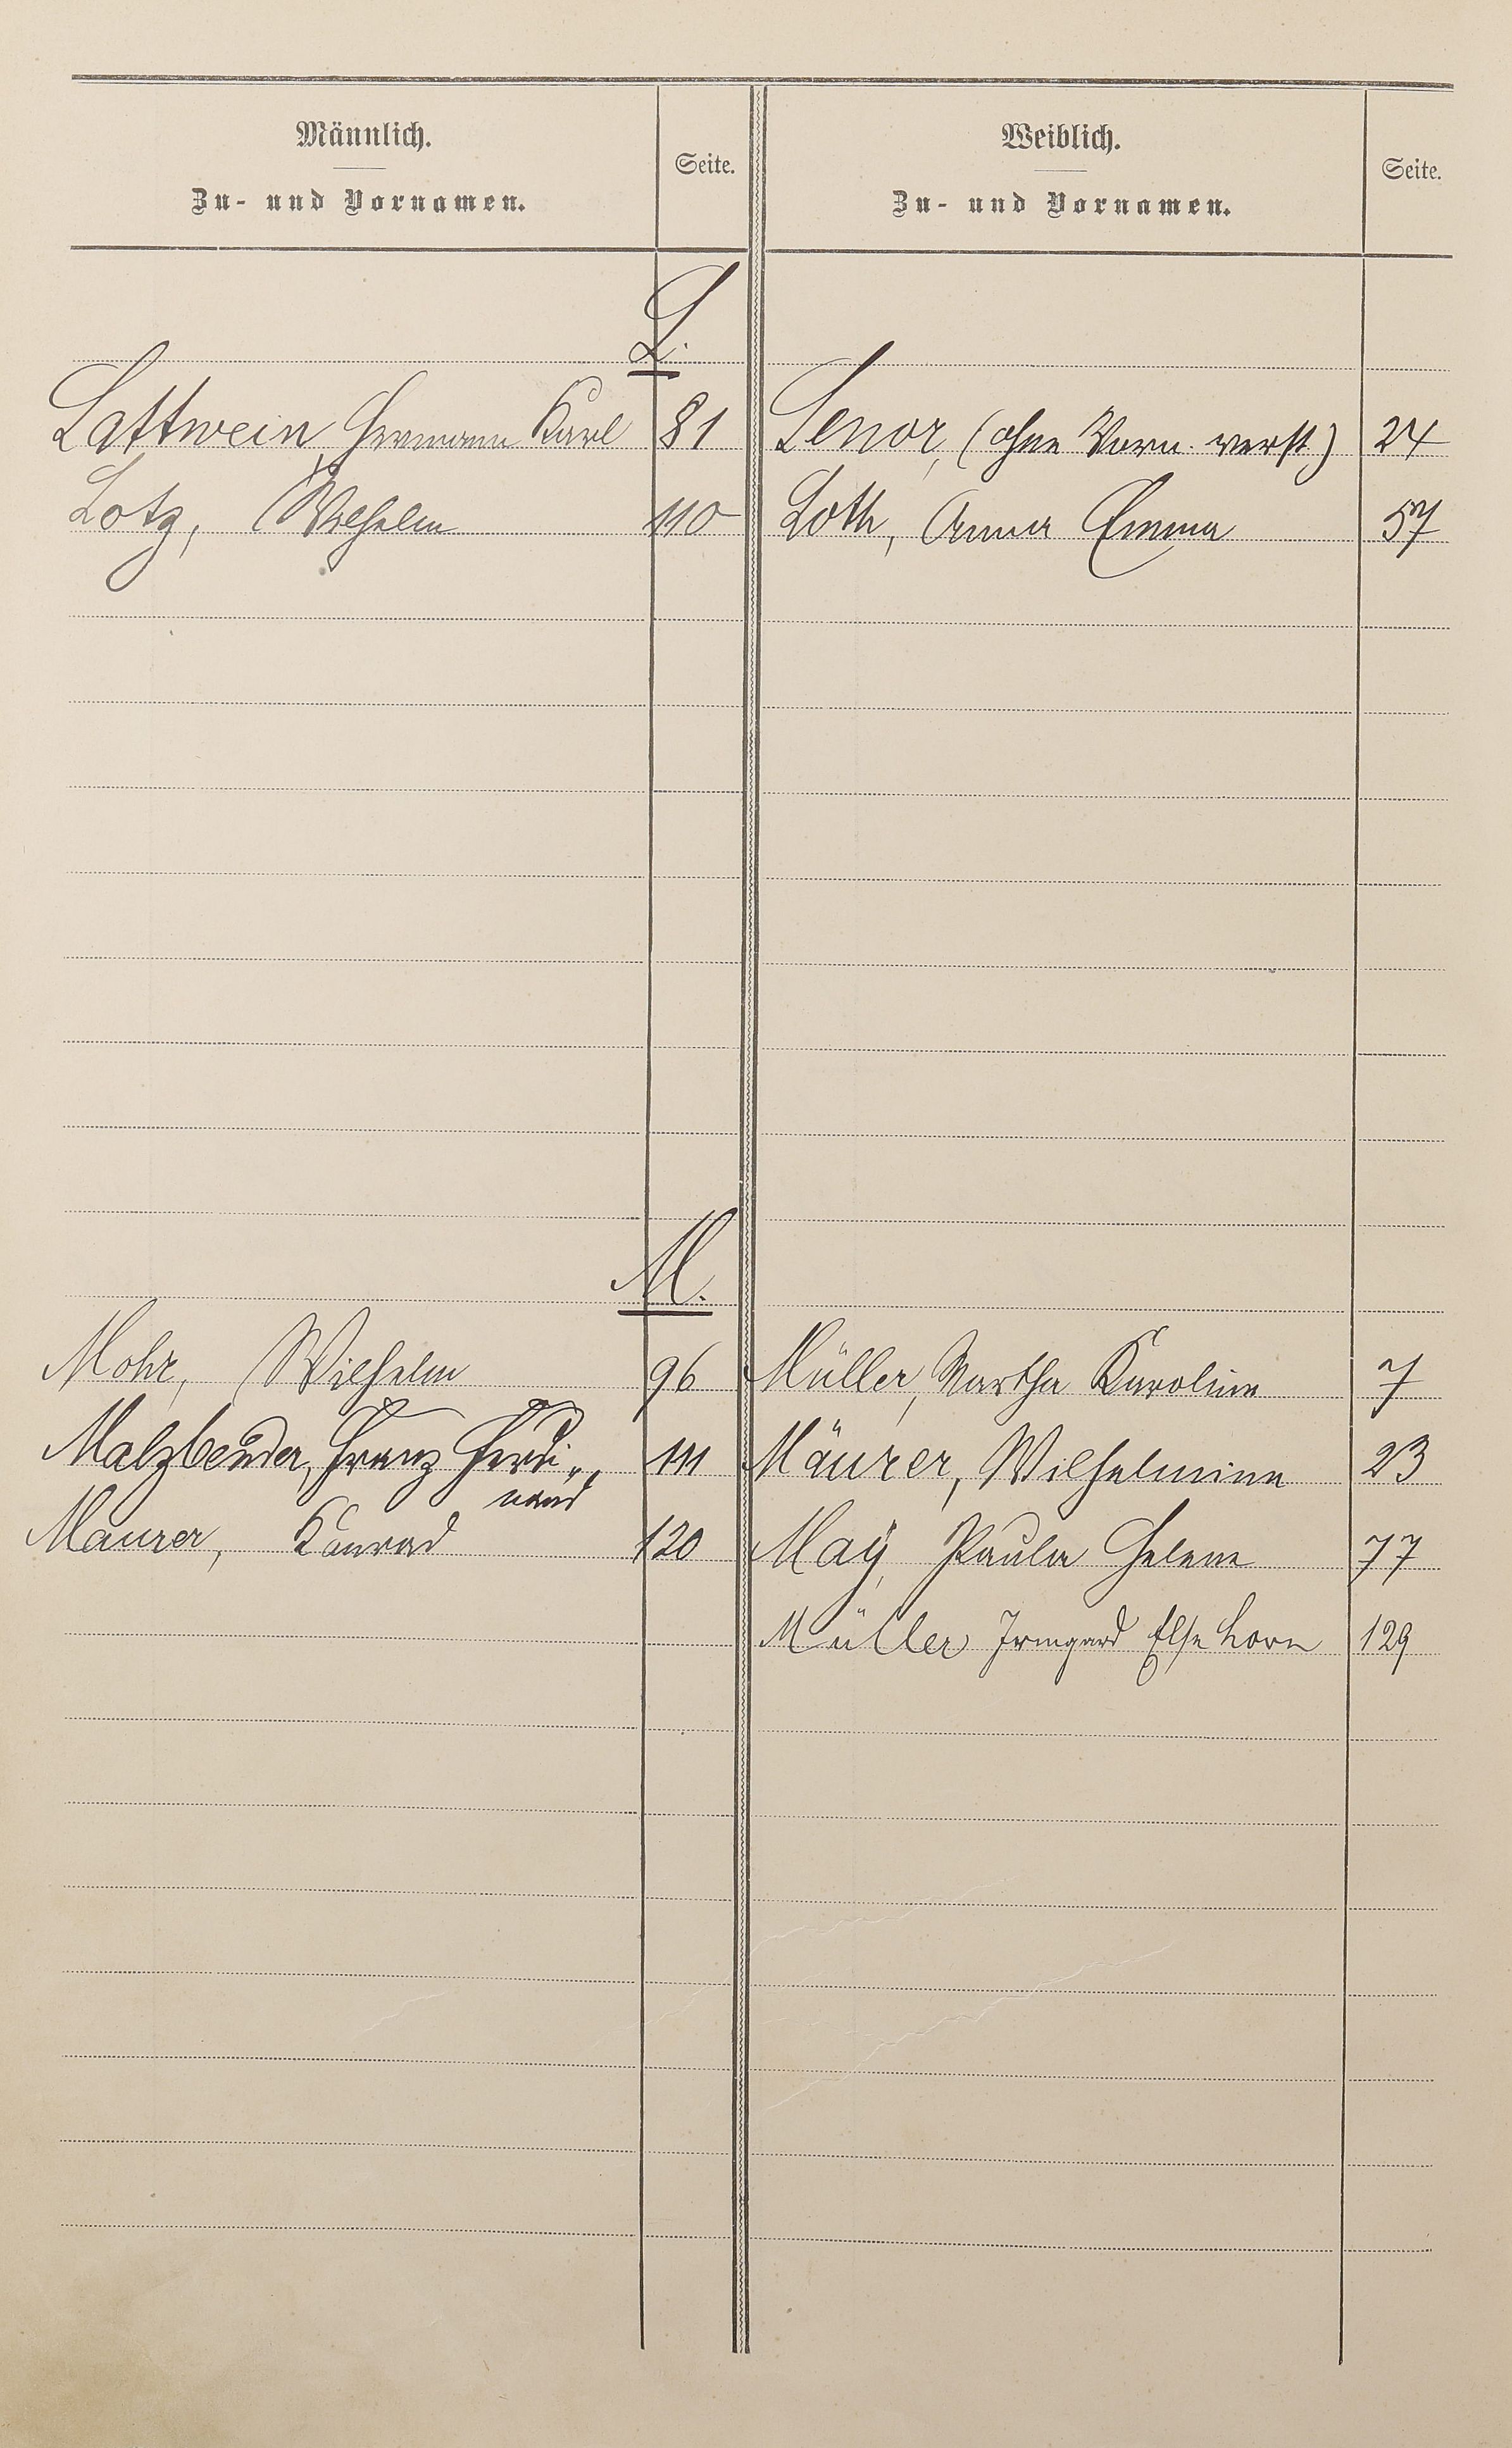 Männlich.
Zu- und Vornamen.
Seite.
Weiblich.
Zu- und Vornamen.
Seite.
L.
Lattwein, Hermann Karl 81
Lenor, (ohne Vorn. verst.) 24
Lotz, Wilhelm 110
Loth, Anna Emma 57
M.
Mohr, Wilhelm 96
Müller, Martha Karoline 7
Malzbender, Franz Ferdi„
nand
111
Mäurer, Wilhelmine 23
Maurer, Konrad 120
Maÿ, Paula Helene 77
Müller Irmgard Else 129